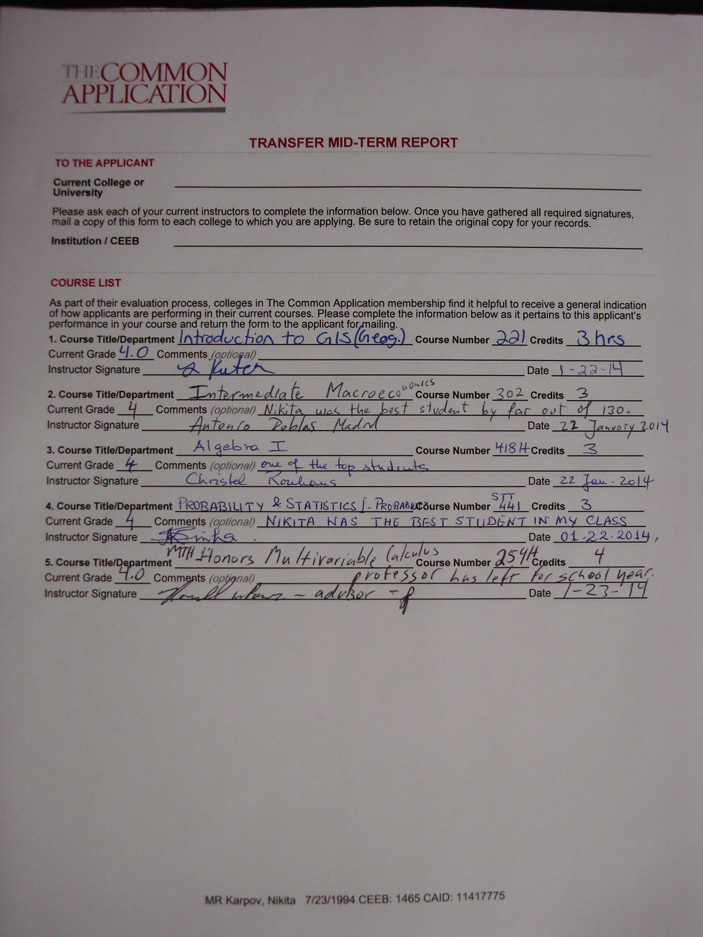 THE COMMON
APPLICATION
TRANSFER MID-TERM REPORT
TO THE APPLICANT
Current College or
University
Please ask each of your current instructors to complete the information below. Once you have gathered all required signatures,
mail a copy of this form to each college to which you are applying. Be sure to retain the original copy for your records.
Institution / CEEB
COURSE LIST
As part of their evaluation process, colleges in The Common Application membership find it helpful to receive a general indication
of how applicants are performing in their current courses. Please complete the information below as it pertains to this applicant's
performance in your course and return the form to the applicant for mailing.
1. Course Title/Department Introduction to GIS (Geog.) Course Number 221 Credits 3 hrs
Current Grade 4.0 Comments (optional)
Instructor Signature Date 1-22-14
2. Course Title/Department Intermediate Macroeconomics Course Number 302 Credits 3
Current Grade 4 Comments (optional) Nikita was the best student by far out of 130.
Instructor Signature Antonio Doblas Madrid Date 22 January 2014
3. Course Title/Department Algebra I Course Number 418H Credits 3
Current Grade 4 Comments (optional) one of the top students
Instructor Signature Christel Rotthaus Date 22 Jan. 2014
4. Course Title/Department PROBABILITY & STATISTICS I - Course Number STT 441 Credits 3
Current Grade 4 Comments (optional) NIKITA WAS THE BEST STUDENT IN MY CLASS
Instructor Signature Date 01-22-2014,
5. Course Title/Department MTH Honors Multivariable Calculus Course Number 254H Credits 4
Current Grade 4.0 Comments (optional) professor has left for school year.
Instructor Signature - advisor - Date 1-23-14
MR Karpov, Nikita 7/23/1994 CEEB: 1465 CAID: 11417775